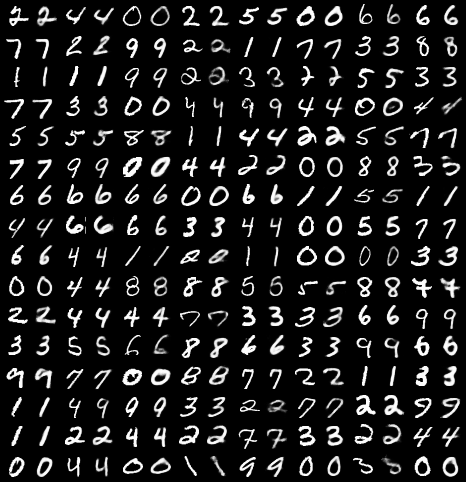 2 2 4 4 0 0 2 2 5 5 0 0 6 6 6 6
7 7 2 2 9 9 2 2 1 1 7 7 3 3 8 8
1 1 1 1 9 9 2 2 3 3 2 2 5 5 3 3
7 7 3 3 0 0 4 4 9 9 4 4 0 0 4 4
5 5 5 5 8 8 1 1 4 4 2 2 5 5 7 7
7 7 9 9 0 0 4 4 2 2 0 0 8 8 3 3
6 6 6 6 6 6 0 0 6 6 1 1 5 5 1 1
4 4 6 6 6 6 3 3 4 4 0 0 5 5 7 7
6 6 4 4 1 1 2 2 1 1 0 0 0 0 3 3
0 0 4 4 8 8 8 8 5 5 5 5 8 8 7 7
2 2 4 4 4 4 7 7 3 3 3 3 6 6 9 9
3 3 5 5 6 6 8 8 6 6 3 3 9 9 6 6
9 9 7 7 0 0 8 8 7 7 2 2 1 1 3 3
1 1 4 9 9 9 3 3 2 2 7 7 2 2 9 9
1 1 2 2 4 4 2 2 7 7 3 3 2 2 4 4
0 0 4 4 0 0 1 1 9 9 0 0 3 3 0 0